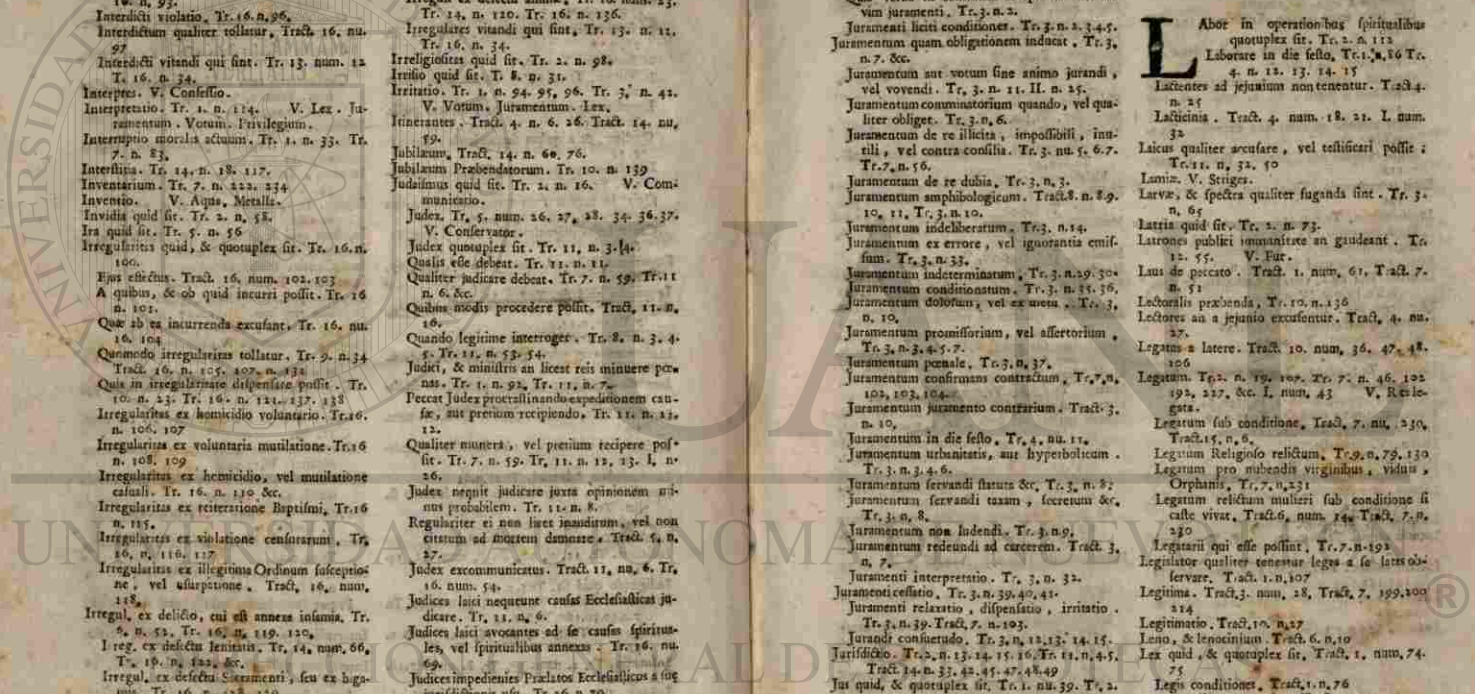 Interdicti violatio. Tr. 16. n. 96.
Interdictum qualiter tollatur. Tract. 16. nu.
97
Interdicti vitandi qui sint. Tr. 13. num. 12
T. 16. n. 34.
Interpres. V. Confessio.
Interpretatio. Tr. 1. n. 114. V. Lex. Ju-
ramentum. Votum. Privilegium.
Interruptio moralis actuum. Tr. 1. n. 33. Tr.
7. n. 83.
Interstitia. Tr. 14. n. 18. 117.
Inventarium. Tr. 7. n. 222. 234
Inventio. V. Aqua, Metalla.
Invidia quid sit. Tr. 2. n. 58.
Ira quid sit. Tr. 5. n. 56
Irregularitas quid, & quotuplex sit. Tr. 16. n.
100.
Ejus effectus. Tract. 16. num. 102. 103
A quibus, & ob quid incurri possit. Tr. 16
n. 101.
Quæ ab ea incurrenda excusant. Tr. 16. nu.
16. 104
Quomodo irregularitas tollatur. Tr. 9. n. 34
Tract. 16. n. 105. 107. n. 132
Quis in irregularitate dispensare possit. Tr.
10. n. 23. Tr. 16. n. 121. 137. 138
Irregularitas ex homicidio voluntario. Tr. 16.
n. 106. 107
Irregularitas ex voluntaria mutilatione. Tr. 16
n. 108. 109
Irregularitas ex homicidio, vel mutilatione
casuali. Tr. 16. n. 110 &c.
Irregularitas ex reiteratione Baptismi. Tr. 16
n. 115.
Irregularitas ex violatione censurarum. Tr.
16. n. 116. 117
Irregularitas ex illegitima Ordinum susceptio-
ne, vel usurpatione. Tract. 16. num.
118.
Irregul. ex delicto, cui est annexa infamia. Tr.
6. n. 52. Tr. 16. n. 119. 120.
Irreg. ex defectu lenitatis. Tr. 14. num. 66.
Tr. 16. n. 122. &c.
Irregul. ex defectu Sacramenti, seu ex biga-
Tr. 14. n. 120. Tr. 16. n. 136.
Irregulares vitandi qui sint. Tr. 13. n. 12.
Tr. 16. n. 34.
Irreligiositas quid sit. Tr. 2. n. 98.
Irrisio quid sit. T. 8. n. 31.
Irritatio. Tr. 1. n. 94. 95. 96. Tr. 3. n. 42.
V. Votum. Juramentum. Lex.
Itinerantes. Tract. 4. n. 6. 26. Tract. 14. nu.
59.
Jubilæum. Tract. 14. n. 60. 76.
Jubilæum Præbendatorum. Tr. 10. n. 139
Judaismus quid sit. Tr. 2. n. 16. V. Com-
municatio.
Judex. Tr. 5. num. 26. 27. 28. 34. 36. 37.
V. Conservator.
Judex quotuplex sit. Tr. 11. n. 3. 4.
Qualis esse debeat. Tr. 11. n. 11.
Qualiter judicare debeat. Tr. 7. n. 59. Tr. 11
n. 6. &c.
Quibus modis procedere possit. Tract. 11. n.
16.
Quando legitime interroget. Tr. 8. n. 3. 4.
5. Tr. 11. n. 53. 54.
Judici, & ministris an liceat reis minuere pœ-
nas. Tr. 1. n. 92. Tr. 11. n. 7.
Peccat Judex procrastinando expeditionem cau-
sæ, aut pretium recipiendo. Tr. 11. n. 11.
12.
Qualiter munera, vel pretium recipere pos-
sit. Tr. 7. n. 59. Tr. 11. n. 12. 13. I. n.
26.
Judex nequit judicare juxta opinionem mi-
nus probabilem. Tr. 11. n. 8.
Regulariter ei non licet inauditum, vel non
citatum ad mortem damnare. Tract. 5. n.
27.
Judex excommunicatus. Tract. 11. nu. 6. Tr.
16. num. 54.
Judices laici nequeunt causas Ecclesiasticas ju-
dicare. Tr. 11. n. 6.
Judices laici avocantes ad se causas spiritua-
les, vel spiritualibus annexas. Tr. 16. nu.
69.
Judices impedientes Prælatos Ecclesiasticos a suæ
vim juramenti. Tr. 3. n. 2.
Juramenti liciti conditiones. Tr. 3. n. 2. 3. 4. 5.
Juramentum quam obligationem inducat. Tr. 3.
n. 7. &c.
Juramentum aut votum sine animo jurandi,
vel vovendi. Tr. 3. n. 11. II. n. 25.
Juramentum comminatorium quando, vel qua-
liter obliget. Tr. 3. n. 6.
Juramentum de re illicita, impossibili, inu-
tili, vel contra consilia. Tr. 3. nu. 5. 6. 7.
Tr. 7. n. 56.
Juramentum de re dubia. Tr. 3. n. 3.
Juramentum amphibologicum. Tract. 8. n. 8. 9.
10. 11. Tr. 3. n. 10.
Juramentum indeliberatum. Tr. 3. n. 14.
Juramentum ex errore, vel ignorantia emis-
sum. Tr. 3. n. 33.
Juramentum indeterminatum. Tr. 3. n. 29. 30.
Juramentum conditionatum. Tr. 3. n. 35. 36.
Juramentum dolosum, vel ex metu. Tr. 3.
n. 10.
Juramentum promissorium, vel assertorium.
Tr. 3. n. 3. 4. 5. 7.
Juramentum pœnale. Tr. 3. n. 37.
Juramentum confirmans contractum. Tr. 7. n.
102. 103. 104.
Juramentum juramento contrarium. Tract. 3.
n. 10.
Juramentum in die festo. Tr. 4. nu. 11.
Juramentum urbanitatis, aut hyperbolicum.
Tr. 3. n. 3. 4. 6.
Juramentum servandi statuta &c. Tr. 3. n. 8.
Juramentum servandi taxam, secretum &c.
Tr. 3. n. 8.
Juramentum non ludendi. Tr. 3. n. 9.
Juramentum redeundi ad carcerem. Tract. 3.
n. 7.
Juramenti interpretatio. Tr. 3. n. 32.
Juramenti cessatio. Tr. 3. n. 39. 40. 41.
Juramenti relaxatio, dispensatio, irritatio.
Tr. 3. n. 39. Tract. 7. n. 103.
Jurandi consuetudo. Tr. 3. n. 12. 13. 14. 15.
Jurisdictio. Tr. 2. n. 13. 14. 15. 16. Tr. 11. n. 4. 5.
Tract. 14. n. 33. 42. 45. 47. 48. 49
Jus quid, & quotuplex sit. Tr. 1. nu. 39. Tr. 2.
LAbor in operationibus spiritualibus
quotuplex sit. Tr. 2. n. 112
Laborare in die festo. Tr. 1. n. 86 Tr.
4. n. 12. 13. 14. 15
Lactentes ad jejunium non tenentur. Tract. 4.
n. 25
Lacticinia. Tract. 4. num. 18. 21. I. num.
32
Laicus qualiter accusare, vel testificari possit;
Tr. 11. n. 32. 50
Lamiæ. V. Striges.
Larvæ, & spectra qualiter fuganda sint. Tr. 3.
n. 65
Latria quid sit. Tr. 2. n. 73.
Latrones publici immunitate an gaudeant. Tr.
12. 55. V. Fur.
Laus de peccato. Tract. 1. num. 61. Tract. 7.
n. 51
Lectoralis præbenda. Tr. 10. n. 136
Lectores an a jejunio excusentur. Tract. 4. nu.
27.
Legatus a latere. Tract. 10. num. 36. 47. 48.
106
Legatum. Tr. 2. n. 19. 107. Tr. 7. n. 46. 102
192. 227. &c. I. num. 43 V. Res le-
gata.
Legatum sub conditione. Tract. 7. nu. 230.
Tract. 15. n. 6.
Legatum Religioso relictum. Tr. 9. n. 79. 130
Legatum pro nubendis virginibus, viduis,
Orphanis. Tr. 7. n. 231
Legatum relictum mulieri sub conditione si
caste vivat. Tract. 6. num. 14. Tract. 7. n.
230
Legatarii qui esse possint. Tr. 7. n. 192
Legislator qualiter teneatur leges a se latas ob-
servare. Tract. 1. n. 107
Legitima. Tract. 3. num. 28. Tract. 7. 199. 200
214
Legitimatio. Tract. 10. n. 27
Leno, & lenocinium. Tract. 6. n. 10
Lex quid, & quotuplex sit. Tract. 1. num. 74.
75
Legis conditiones. Tract. 1. n. 76
UANL
UNIVERSIDAD AUTÓNOMA DE NUEVO LEÓN
®